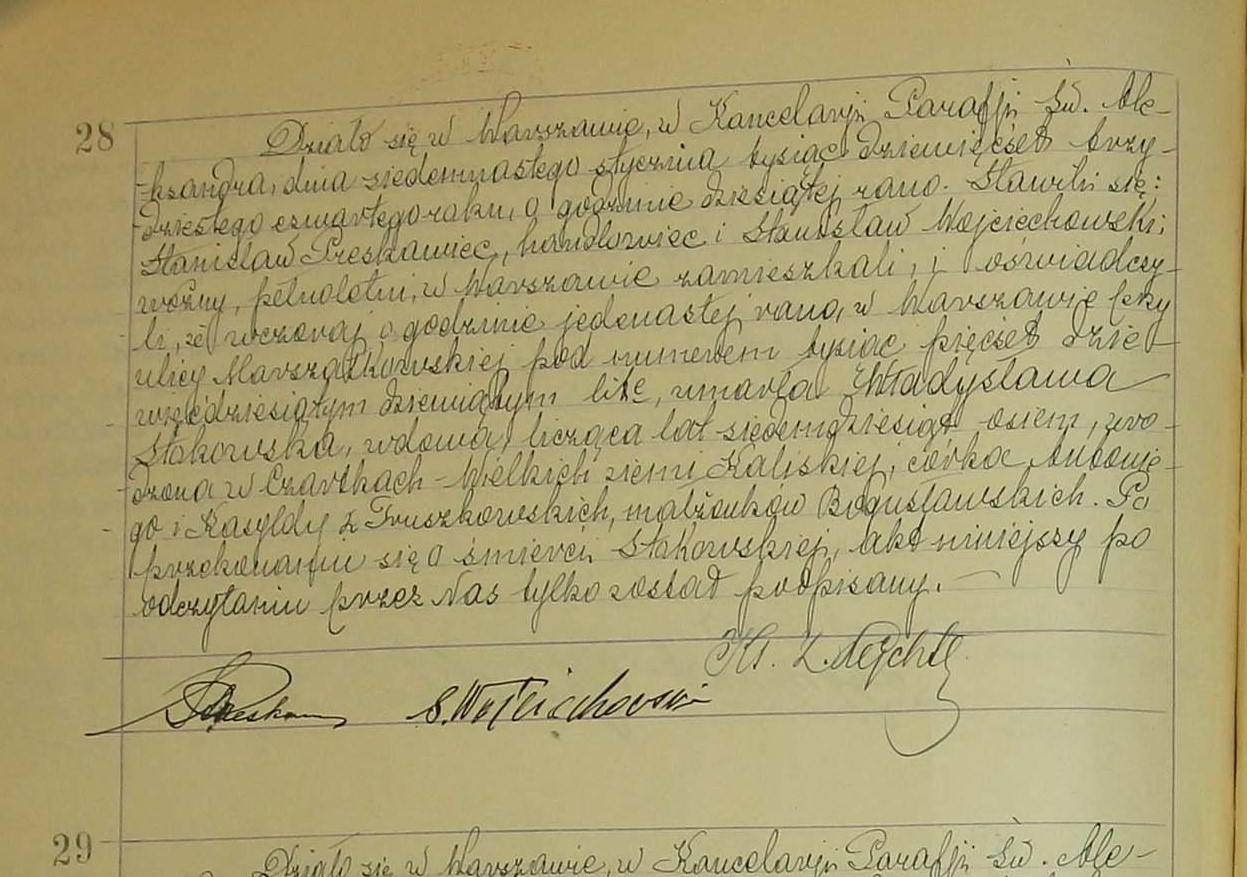 28
Działo się w Warszawie, w Kancelarji Parafji Św. Ale-
ksandra, dnia siedemnastego stycznia tysiąc dziewięćset trzy-
dziestego czwartego roku, o godzinie dziesiątej rano. Stawili się:
Stanisław Preskawiec, handlowiec i Stanisław Wojciechowski,
woźny, pełnoletni, w Warszawie zamieszkali, i oświadczy-
li, że wczoraj o godzinie jedenastej rano, w Warszawie przy
ulicy Marszałkowskiej pod numerem tysiąc pięćset dzie-
więćdziesiątym dziewiątym lit, umarła Władysława
Stokowska, wdowa, licząca lat siedemdziesiąt osiem, uro-
dzona w Czartkach-Wielkich ziemi Kaliskiej, córka Antonie-
go i Kasyldy z Truszkowskich, małżonków Bogusławskich. Po
przekonaniu się o śmierci Stokowskiej, akt niniejszy po
odczytaniu przez Nas tylko został podpisany.
Ks. Z.
S. Wojciechowski
29
Działo się w Warszawie, w Kancelarji Parafji Św. Ale-